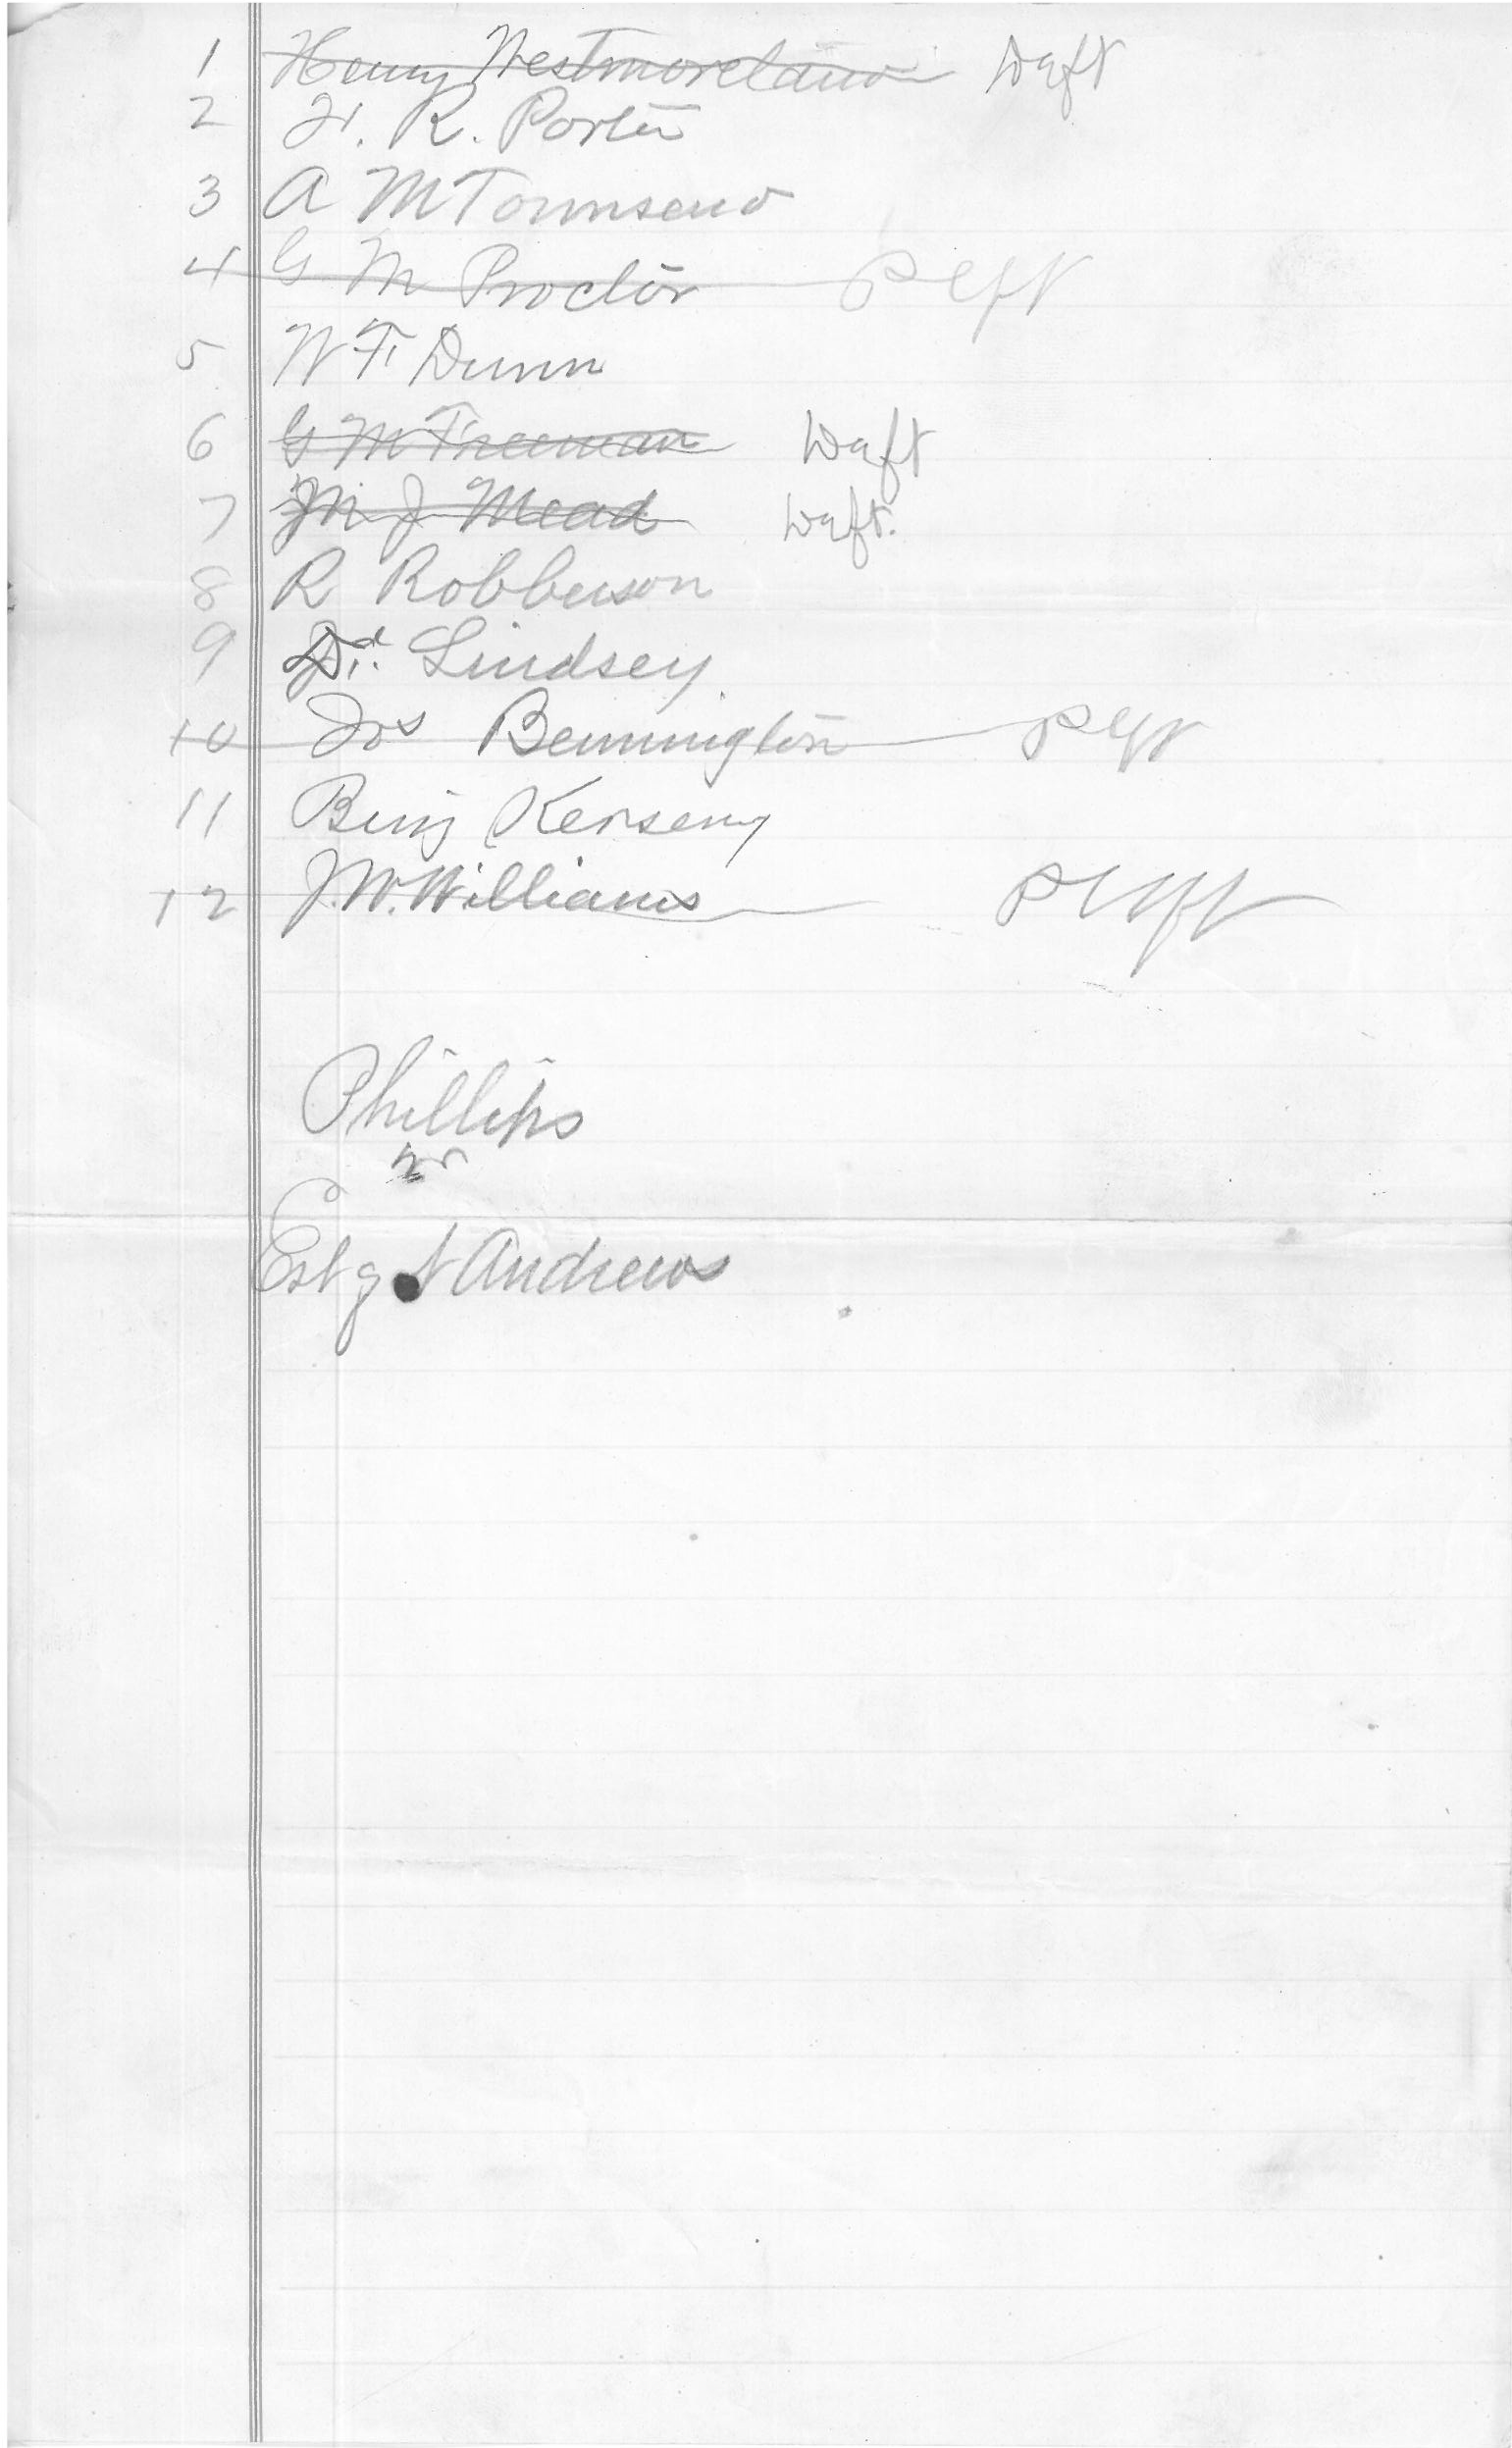 1 Henry Westmoreland Deft
2 F. R. Porter
3 A M Townsend
4 G M Proctor Plff
5 W F Dunn
6 G M Freeman Deft
7 J Mead Deft.
8 R Robberson
9 Lindsey
10 Jos Bennington Plff
11 Benj Kersey
12 J. W. Williams Plff
Phillips
vs
Est of Andrews